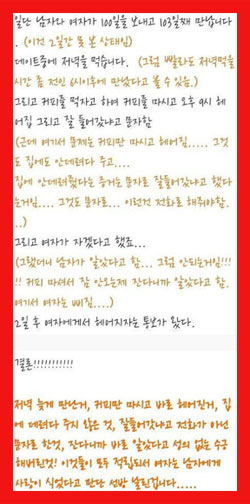 일단 남자와 여자가 100일을 보내고 103일째 만납니다
. (이건 2일간 못 본 상태임)
데이트중에 저녁을 먹습니다. (그럼 빨라도 저녁먹을
시간 쯤 전인 6시이후에 만났다고 볼 수 있음.)
그리고 커피를 먹자고 하여 커피를 마시고 오후 9시 헤
어짐 그리고 잘 들어갔냐고 문자함
(근데 여기서 문제는 커피만 마시고 헤어짐..... 그것
도 집에도 안데려다 주고....
집에 안데려줬다는 증거는 문자로 잘들어갔냐고 했다
는거임.... 그것도 문자로... 이런건 전화로 해줘야함.
..)
그리고 여자가 자겠다고 했죠...
(그랬더니 남자가 알았다고 함... 그럼 안되는거임!!!
!! 커피 마셔서 잠 안오는데 잔다니까 알았다고 함.
여기서 여자는 삐짐....)
2일 후 여자에게서 헤어지자는 통보가 왔다.
결론!!!!!!!!!!!
저녁 늦게 만난거, 커피만 마시고 바로 헤어진거, 집
에 데려다 주지 않은 것, 잘들어갔냐고 전화가 아닌
문자로 한것, 잔다니까 바로 알았다고 성의 없는 수긍
해버린것! 이것들이 모두 적립되서 여자는 남자에게
사랑이 식었다고 판단 선방 날린겁니다.....